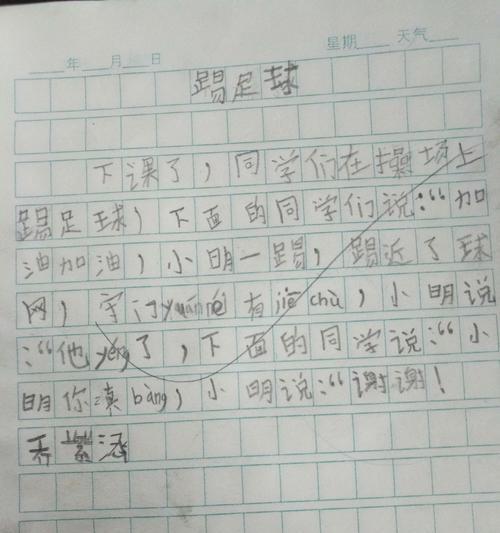 年 月 日 星期 天气
踢足球
下课了,同学们在操场上
踢足球,下面的同学们说:“加
油加油,小明一踢,踢近了球
网,守门yuán 有jiē chù,小明说
:“他yíng了,下面的同学说:“小
明你真bàng,小明说:“谢谢!